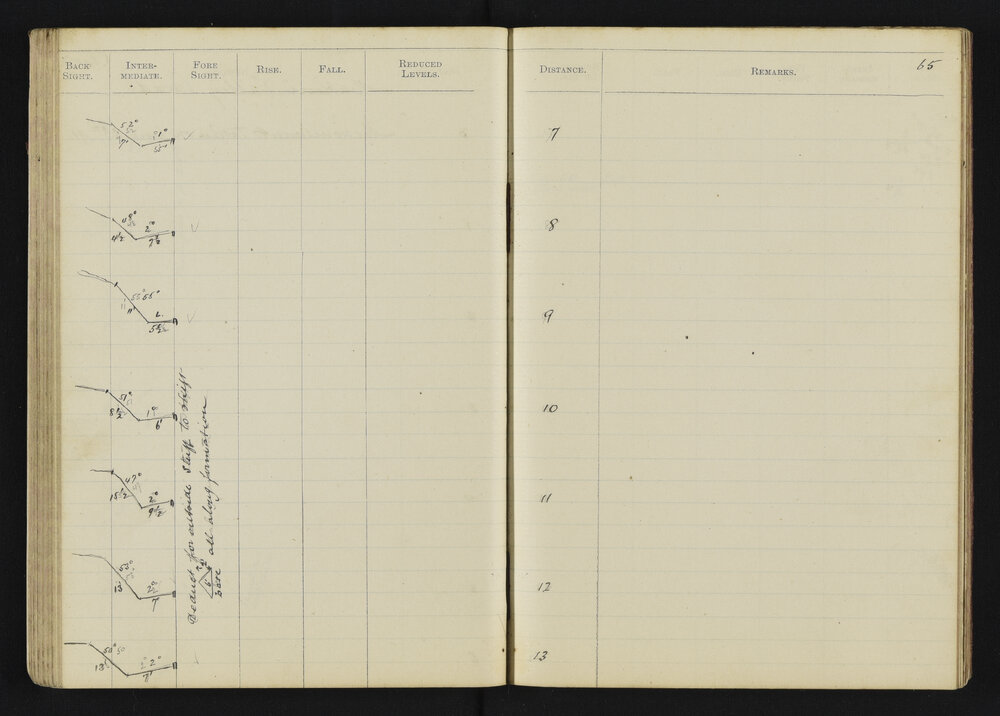 BACK SIGHT. INTERMEDIATE. FORE SIGHT. RISE. FALL. REDUCED LEVELS. DISTANCE. REMARKS. 65
52° 1°
7' 55'
7
48° 2°
4½ 7½
8
55° 55°
11 11
9
51° 1°
8½ 6'
10
47° 2°
15½ 9½
11
53° 2°
13 7
12
50° 50 2° 2°
13' 7'
13
Deduct for outside stuff to
all along formation